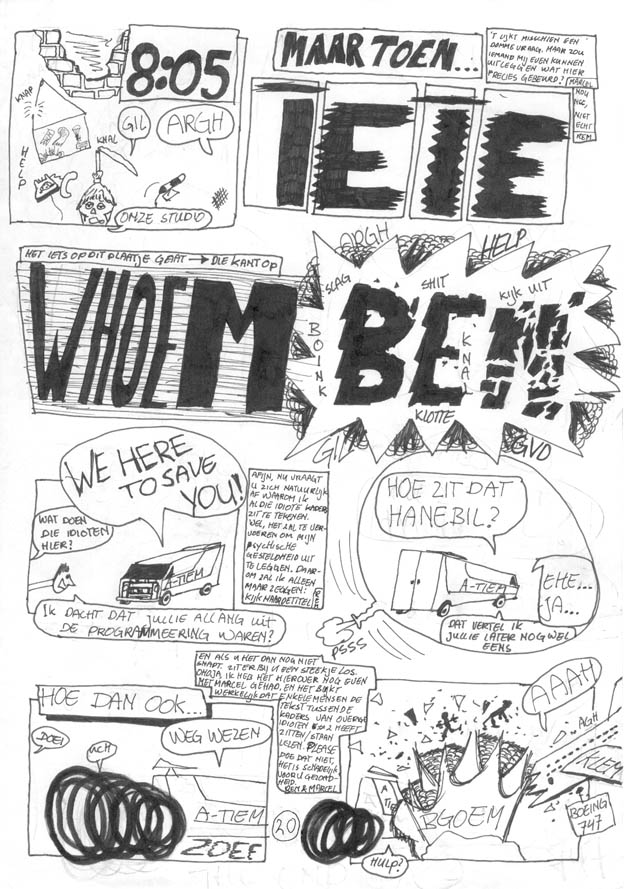 8:05
KNAP
GIL
ARGH
KNAL
HELP
ONZE STUDIO
MAAR TOEN...
'T LIJKT MISSCHIEN EEN
DOMME VRAAG, MAAR ZOU
IEMAND MIJ EVEN KUNNEN
UITLEGGEN WAT HIER
PRECIES GEBEURD?
MARCEL
NOU
NEE,
NIET
ECHT
REM
IEIE
HET IETS OP DIT PLAATJE GAAT → DIE KANT OP
WHOEM
ARGH
HELP
SLAG
SHIT
KIJK UIT
BOINK
BEM
KNAL
KLOTTE
GIL
GVD
WE HERE
TO SAVE
YOU!
WAT DOEN
DIE IDIOTEN
HIER?
A-TIEM
IK DACHT DAT JULLIE ALLANG UIT
DE PROGRAMMEERING WAREN?
AFIJN, NU VRAAGT
U ZICH NATUURLIJK
AF WAAROM IK
AL DIE IDIOTE KADERS
ZIT TE TEKENEN.
WEL, HET ZAL TE VER
VOEREN OM MIJN
PSYCHISCHE
GESTELDHEID UIT
TE LEGGEN. DAAR-
OM ZAL IK ALLEEN
MAAR ZEGGEN:
KIJK NAAR DE TITEL
REM
HOE ZIT DAT
HANEBIL?
A-TIEM
EHE...
JA...
DAT VERTEL IK
JULLIE LATER NOG WEL
EENS
PSSS
EN ALS U HET DAN NOG NIET
SNAPT. ZIT ER BIJ U EEN STEEKJE LOS.
OHOJA, IK HEB HET HIEROVER NOG EVEN
MET MARCEL GEHAD, EN HET BLIJKT
WERKELIJK DAT ENKELE MENSEN DE
TEKST TUSSEN DE
KADERS VAN OVERGE
IDIOTEN 1 EN 2 HEEFT
ZITTEN/STAAN
LEZEN. PLEASE
DOE DAT NIET,
HET IS SCHADELIJK
VOOR U GEZOND-
HEID.
REM & MARCEL
HOE DAN OOK...
DOEI
ACH
WEG WEZEN
A-TIEM
ZOEF
20
AAAH
ARGH
KLEM
A
TIE
BGOEM
BOEING
747
HULP?